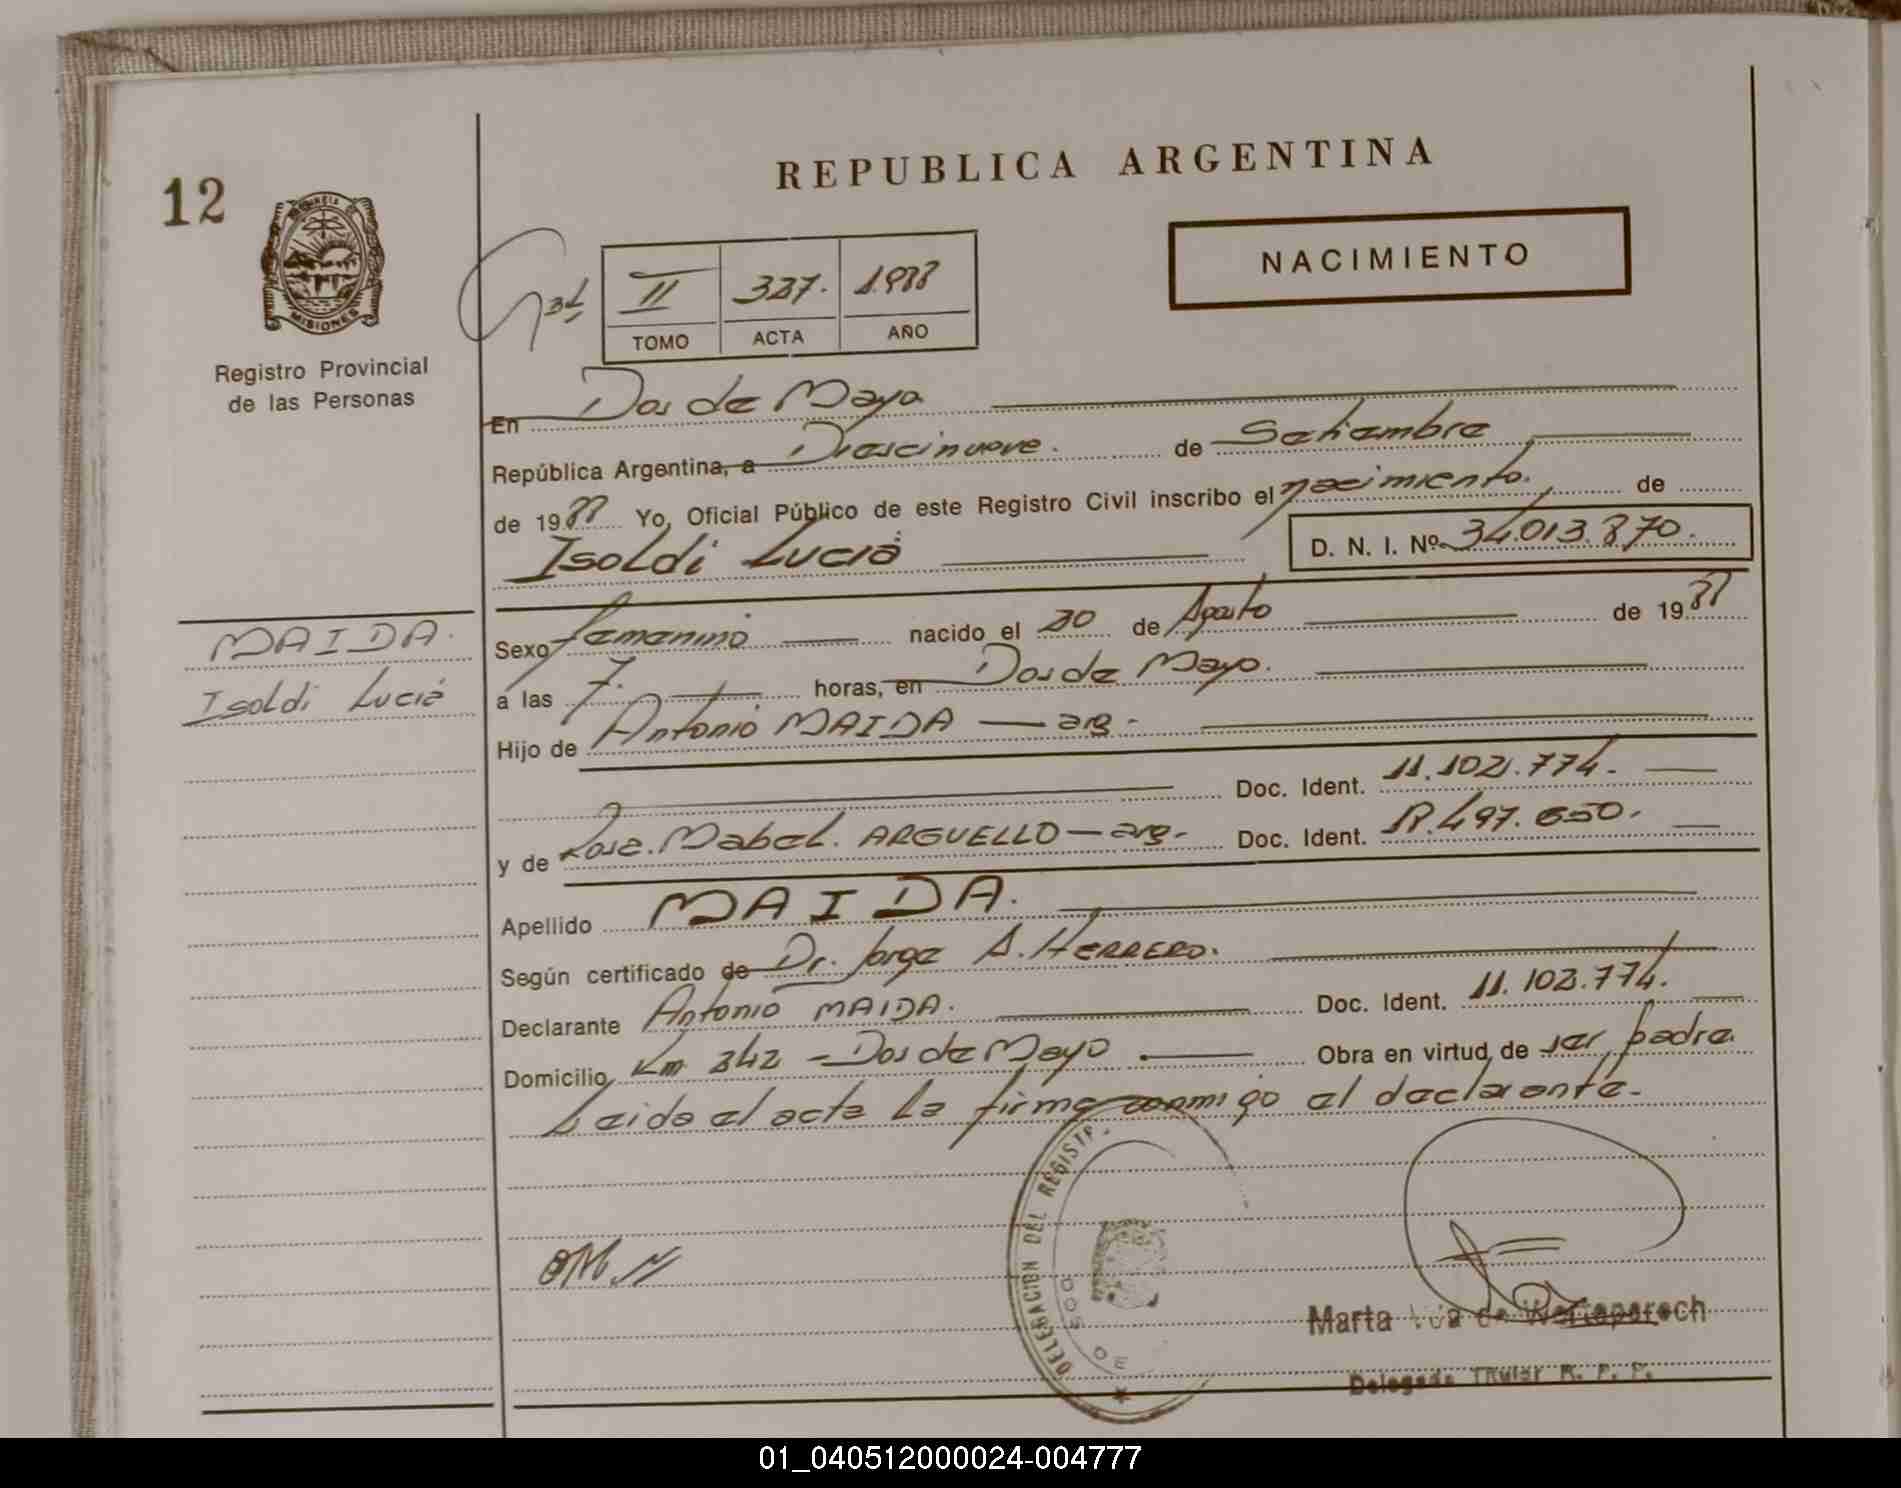 REPUBLICA ARGENTINA
12
PROVINCIA DE
MISIONES
NACIMIENTO
II 327. 1988
TOMO ACTA AÑO
Registro Provincial
de las Personas
En Dos de Mayo
República Argentina, a Diescinueve. de Setiembre
de 1988 Yo, Oficial Público de este Registro Civil inscribo el nacimiento. de
Isoldi Lucia D. N. I. Nº 34.013.870.
MAIDA.
Isoldi Lucia
Sexo femenino nacido el 30 de Agosto de 1988
a las 7. horas, en Dos de Mayo.
Hijo de Antonio MAIDA — arg.
Doc. Ident. 11.102.774.
y de Rosa. Mabel. ARGUELLO — arg. Doc. Ident. 17.497.650.
Apellido MAIDA.
Según certificado de Dr. Jorge A. HERRERO.
Declarante Antonio MAIDA. Doc. Ident. 11.102.774.
Domicilio Km 242 – Dos de Mayo Obra en virtud de ser padre
Leida el acta la firma conmigo el declarante.
DELEGACION DEL REGISTR
DOS DE
Marta de
Delegada Titular R. P. P.
01_040512000024-004777